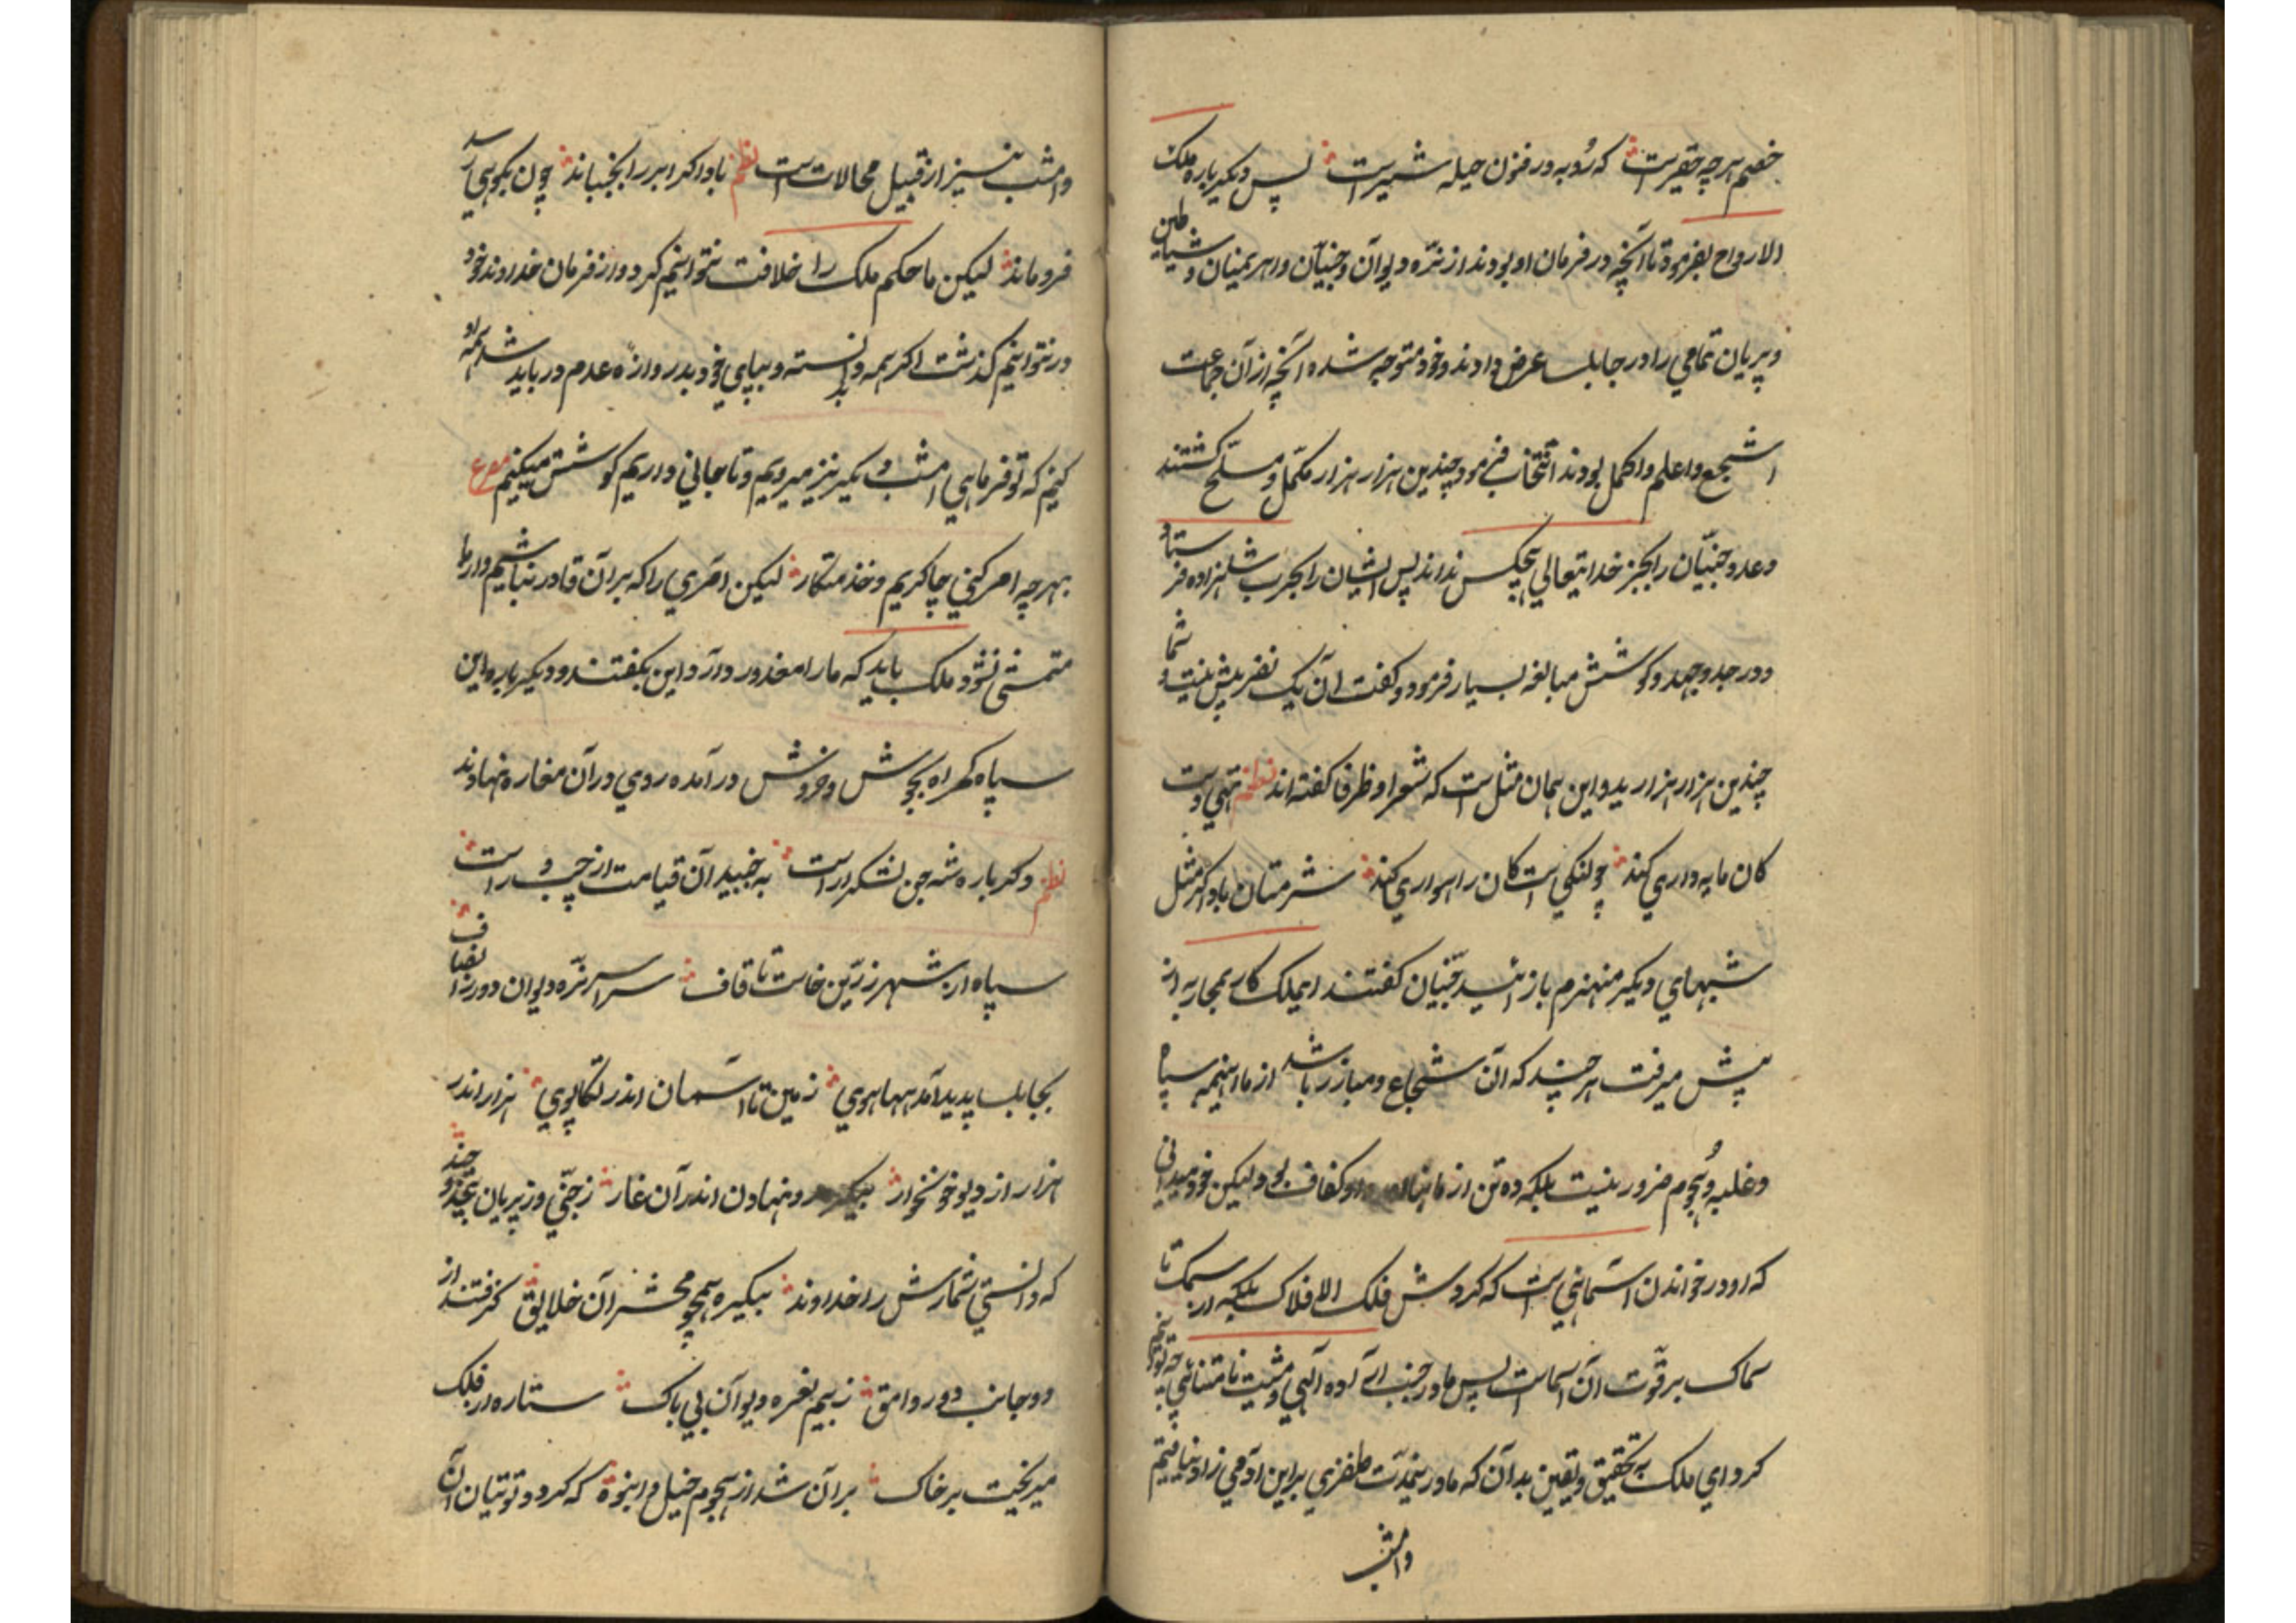 خصم هرچه حقیرست که رُوبه در فزون حیله شیرست پس دیگر باره ملک
الارواح بفرمود تا آنچه در فرمان او بودند از نرّه دیوآن و جنیّآن و اهریمنان و شیاطین
و پریان تمامی را در جابلسا عرض دادند و خود متوجه شده آنچه از آن جماعت
اشجع و اعلم و اکمل بودند انتخاب فرمود چندین هزار هزار مکمّل و مسلّح گشتند
و عدد جنیّان را بجز خدایتعالی هیچکس نداند پس ایشان را بحرب شاهزاده فرستاد
و در جد و جهد و کوشش مبالغه بسیار فرمود و گفت آن یک نفر بیش نیست و شما
چندین هزار هزارید و این همان مثل است که شعرا و ظرفا گفته‌اند نظم تهی دست
کان مایه‌داری کند چو لنگی است کان راهواری کند شرمتان باد اگر مثل
شبهای دیگر منهزم باز آئید جنّیان گفتند ای ملک کار بمحاربه از
پیش میرفت هر چند که آن شجاع و مبارز باشد از ما اینهمه سپاه
و غلبه و هُجوم ضرور نیست بلکه ده تن از ما او کفاف بود لیکن خود میدانی
که او در خواندن اسمائیست که گردش فلک الافلاک بلکه از سمک تا
سماک بر قوّت آن اسماست پس ما در جنب ارآده آلهی و مشیت نامتناهی چه توانیم
کرد ای ملک به تحقیق و یقین بدآن که ما درینمدّت ظفری براین آدمی زاد نیافتیم
وامشب
وامشب نیز از قبیل محالات است نظم باد اگر ابر را بجنباند چون بکوهی رسد
فرو ماند لیکن ما حکم ملک را خلافت نتوانیم کرد و از فرمان خداوند خود
در نتوانیم گذشت اگر همه دانسته و بپای خود بدروازهٔ عدم در باید شد همه آن
کنیم که تو فرمایی امشب دیگر نیز میرویم و تا جانی داریم کوشش میکنیم مصرع
بهرچه امر کنی چاکریم و خذمتکار لیکن امری را که برآن قادر نباشیم و از ما
متمشّی نشود ملک باید که ما را معذور دارَد این بگفتند و دیگر باره این
سپاه گمراه بجوش و خروش درآمده روی درآن مغاره نهادند
نظم دگر باره شه جن لشکر آراست به جنبید آن قیامت از چپ و راست
سپاه از شهر زرّین خاست تا قاف سراسر نرّه دیوان دور از انصاف
بجابلسا پدید آمد هیاهوی زمین تا آسمان اندر تکاپوی هزار اندر
هزار از دیو خونخوار بیکره رو نهادن اندر آن غار ز جنّی وز پریان بیحد و چند
که دانستی شمارش را خداوند بیکره همچو محشر آن خلایق گرفتند از
دو جانب دور وامق ز بیم نعره دیوآن بی باک ستاره از فلک
میریخت بر خاک برآن شد از هجوم خیل و انبوة که گردد توتیان آن